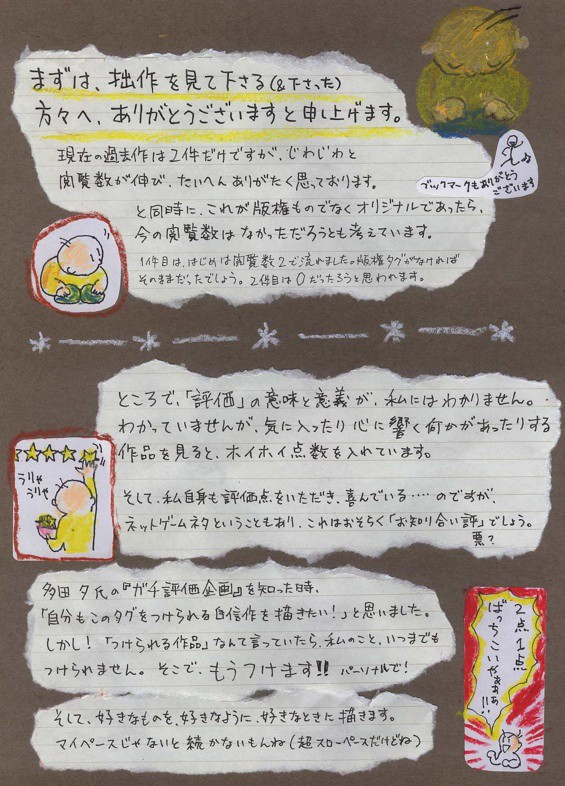 まずは、拙作を見て下さる(&下さった)
方々へ、ありがとうございますと申し上げます。
現在の過去作は2件だけですが、じわじわと
閲覧数が伸び、たいへんありがたく思っております。
ブックマークもありがとう
ございます
と同時に、これが版権ものでなくオリジナルであったら、
今の閲覧数はなかっただろうとも考えています。
1件目は、はじめは閲覧数2で流れました。版権タグがなければ
そのままだったでしょう。2件目は0だったろうと思われます。
ところで、「評価」の意味と意義が、私にはわかりません。
わかっていませんが、気に入ったり心に響く何かがあったりする
作品を見ると、ホイホイ点数を入れています。
うりゃ
うりゃ
そして、私自身も評価点をいただき、喜んでいる‥‥のですが、
ネットゲームネタということもあり、これはおそらく「お知り合い評」でしょう。
票?
多田夕氏の『ガチ評価企画』を知った時、
「自分もこのタグをつけられる自信作を描きたい!」と思いました。
しかし!「つけられる作品」なんて言っていたら、私のこと、いつまでも
つけられません。そこで、もうつけます!!パーソナルで!
2点1点
ばっちこいやぁぁぁ!!
そして、好きなものを、好きなように、好きなときに描きます。
マイペースじゃないと続かないもんね(超スローペースだけどね)